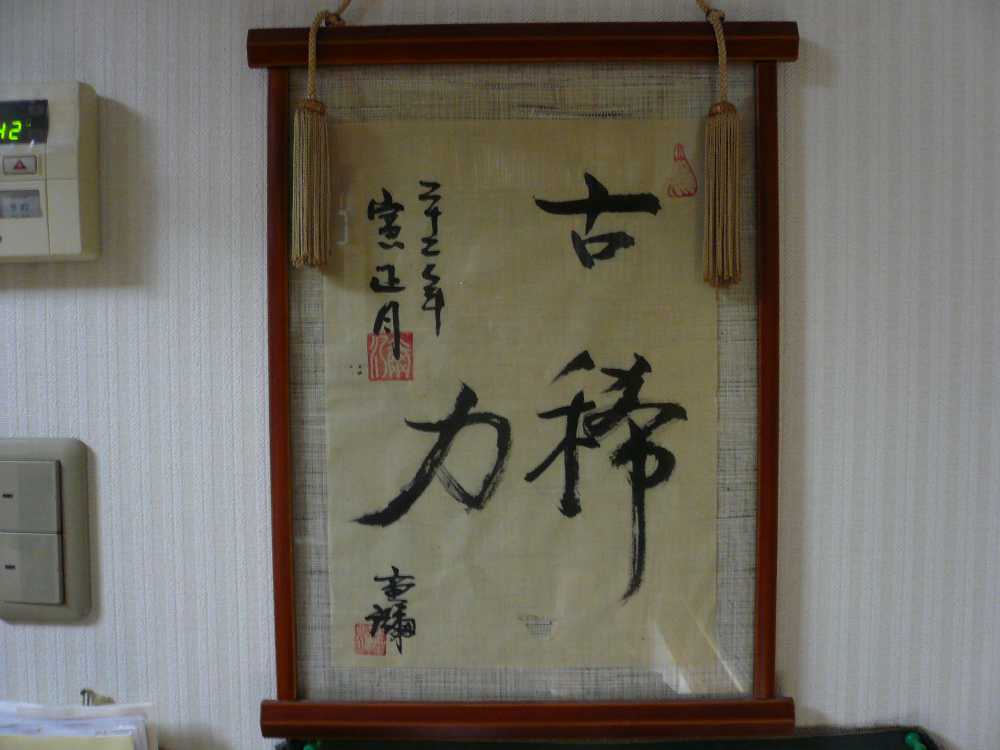 古稀
力
二十二年
寅正月
42